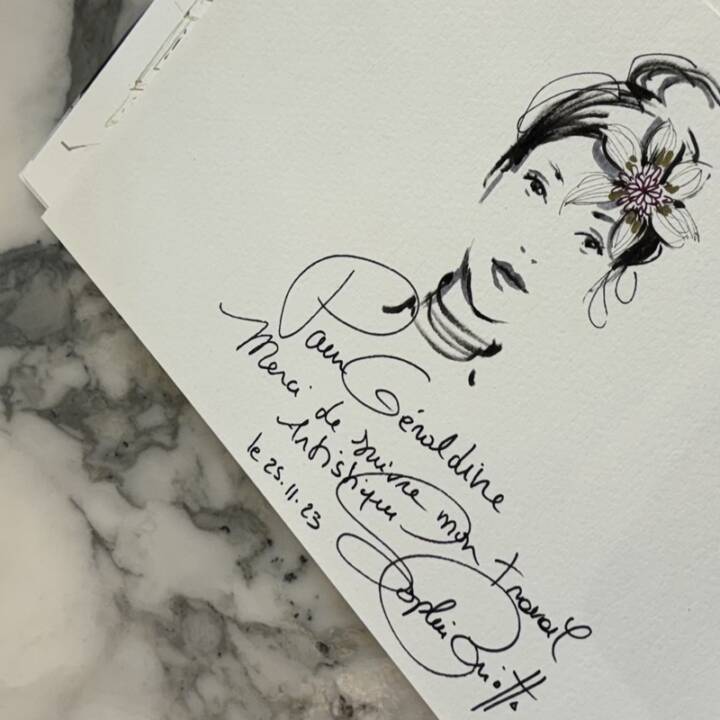 Pour Géraldine
Merci de suivre mon travail
Artistique
le 25.11.23
Sophie Griotto